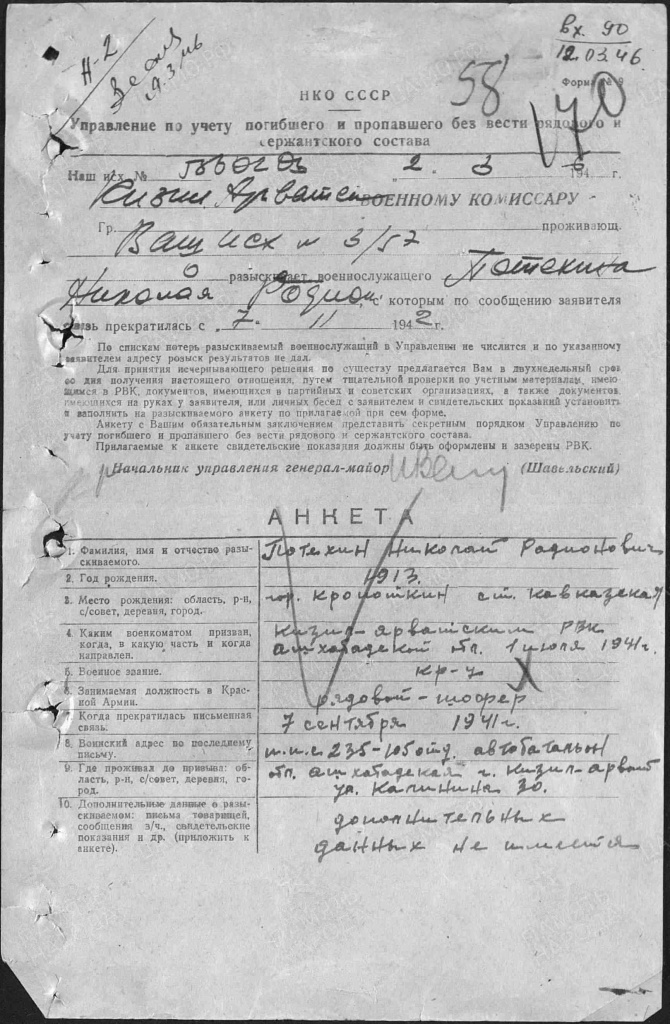 Н-2
19.3.46
вх. 90
12.03.46.
Форма № 9
58
170
НКО СССР
Управление по учету погибшего и пропавшего без вести рядового и
сержантского состава
Наш исх. № 2. 3 194 6 г.
Кизил Арватск ВОЕННОМУ КОМИССАРУ
Гр. проживающ.
Ваш исх № 3/57
разыскивает военнослужащего Потехина
Николая Родион. с которым по сообщению заявителя
связь прекратилась с 7. 11 1942 г.
По спискам потерь разыскиваемый военнослужащий в Управлении не числится и по указанному
заявителем адресу розыск результатов не дал.
Для принятия исчерпывающего решения по существу предлагается Вам в двухнедельный срок
со дня получения настоящего отношения, путем тщательной проверки по учетным материалам, имею-
щимся в РВК, документов, имеющихся в партийных и советских организациях, а также документов,
имеющихся на руках у заявителя, или личных бесед с заявителем и свидетельских показаний установить
и заполнить на разыскиваемого анкету по прилагаемой при сем форме.
Анкету с Вашим обязательным заключением представить секретным порядком Управлению по
учету погибшего и пропавшего без вести рядового и сержантского состава.
Прилагаемые к анкете свидетельские показания должны быть оформлены и заверены РВК.
Начальник управления генерал-майор (Шавельский)
АНКЕТА
1. Фамилия, имя и отчество разы-
скиваемого.
Потехин Николай Радионович
2. Год рождения.
1913.
3. Место рождения: область, р-н,
с/совет, деревня, город.
гор. Кропоткин ст. Кавказская
4. Каким военкоматом призван,
когда, в какую часть и когда
направлен.
Кизил-Арватским РВК
Ашхабадской обл. 1 июля 1941г.
5. Военное звание.
кр-ц
6. Занимаемая должность в Крас-
ной Армии.
рядовой-шофер
7. Когда прекратилась письменная
связь.
7 сентября 1941г.
8. Воинский адрес по последнему
письму.
п.п.с 235-105 отд. автобатальон
9. Где проживал до призыва: об-
ласть, р-н, с/совет, деревня, го-
род.
обл. Ашхабадская г. Кизил-Арват
ул. Калинина 30.
10. Дополнительные данные о разы-
скиваемом: письма товарищей,
сообщения з/ч., свидетельские
показания и др. (приложить к
анкете).
дополнительных
данных не имется